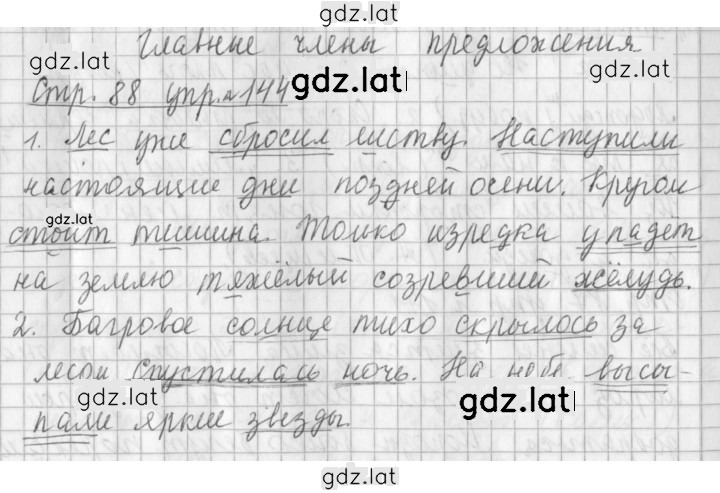 gdz.lat
Главные члены предложения
gdz.lat
gdz.lat
gdz.lat
Стр. 88 упр. 144
1. Лес уже сбросил листву. Наступили
настоящие дни поздней осени. Кругом
gdz.lat
стоит тишина. Только изредка упадёт
на землю тяжёлый созревший жёлудь.
2. Багровое солнце тихо скрылось за
лесом спустилась ночь. На небе высы-
gdz.lat
gdz.lat
пали яркие звёзды.
gdz.lat